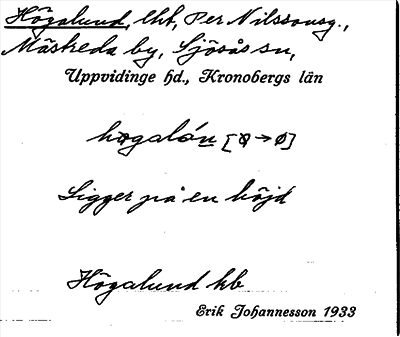 Högalund, lht, Per Nilssonsg.,
Mäskeda by, Sjösås sn,
Uppvidinge hd., Kronobergs län
Ligger på en höjd
Högalund hb
Erik Johannesson 1933